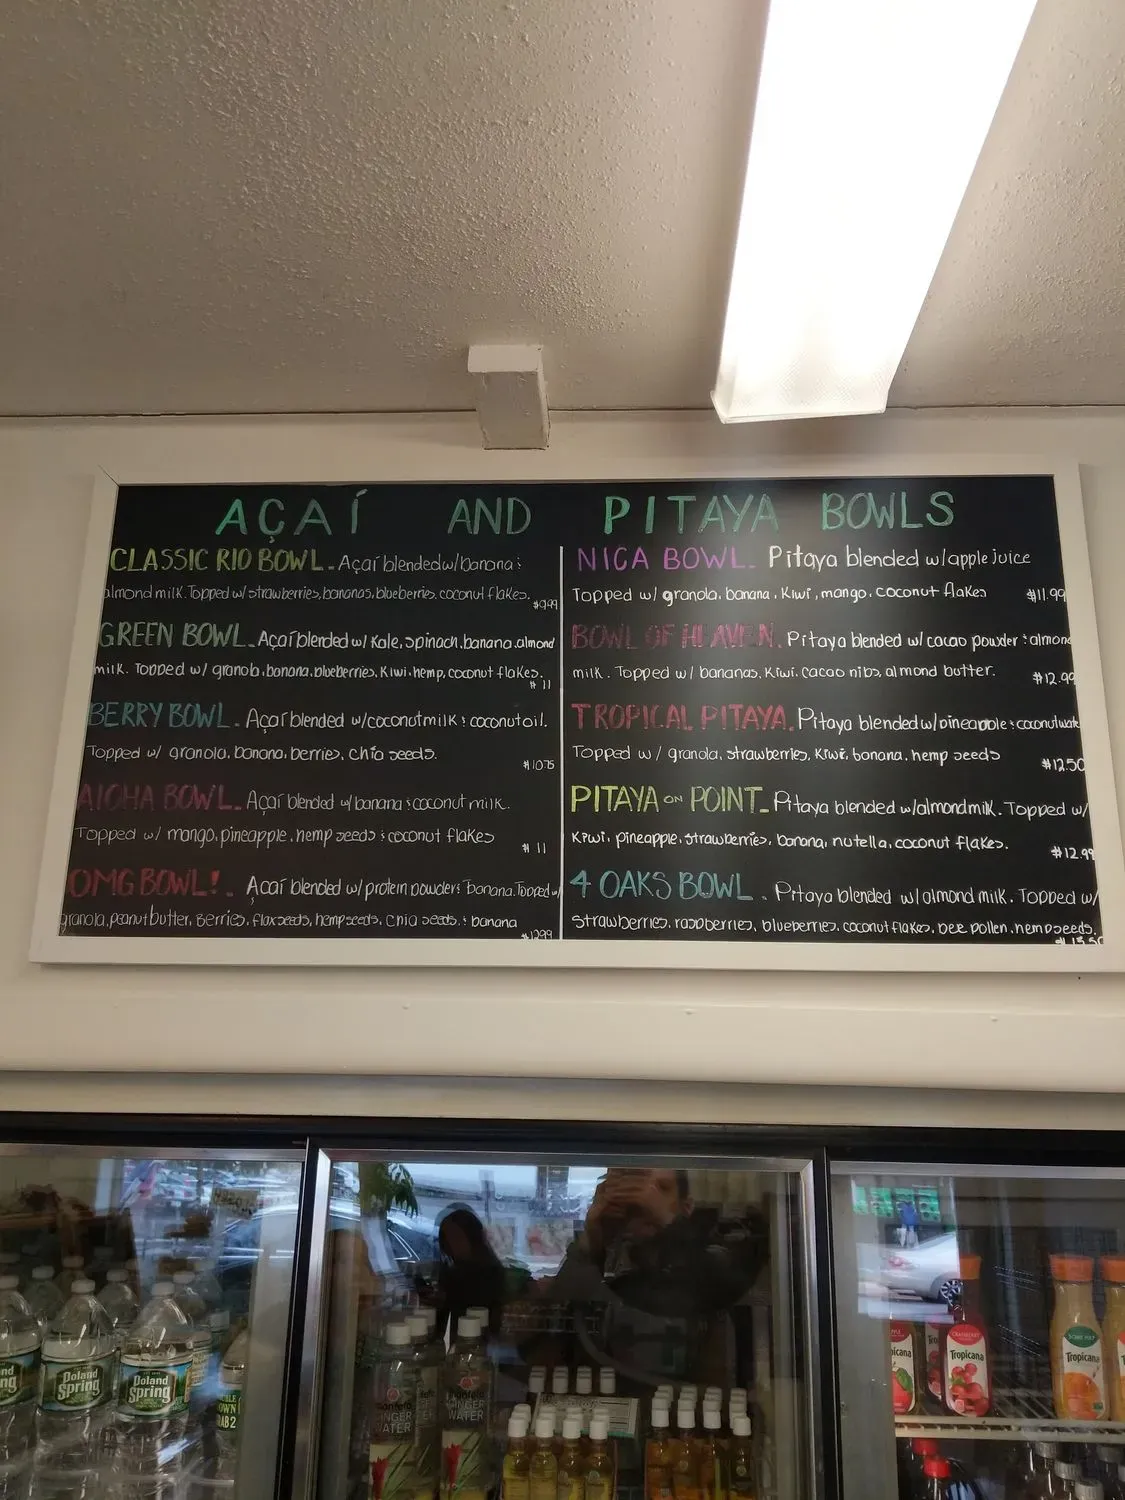 AÇAÍ AND PITAYA BOWLS
CLASSIC RIO BOWL - Açaí blended w/ banana &
almond milk. Topped w/ strawberries, bananas, blueberries, coconut flakes.
$9.99
GREEN BOWL - Açaí blended w/ Kale, spinach, banana, almond
milk. Topped w/ granola, banana, blueberries, Kiwi, hemp, coconut flakes.
$11
BERRY BOWL - Açaí blended w/ coconut milk & coconut oil.
Topped w/ granola, banana, berries, chia seeds.
$10.75
ALOHA BOWL - Açaí blended w/ banana & coconut milk.
Topped w/ mango, pineapple, hemp seeds & coconut flakes
$11
OMG BOWL! - Açaí blended w/ protein powder & banana. Topped w/
granola, peanut butter, Berries, flaxseeds, hempseeds, Chia seeds, & banana
$12.99
NICA BOWL - Pitaya blended w/ apple juice
Topped w/ granola, banana, Kiwi, mango, coconut flakes $11.99
BOWL OF HEAVEN - Pitaya blended w/ cacao powder & almond
milk. Topped w/ bananas, Kiwi, cacao nibs, almond butter.
$12.99
TROPICAL PITAYA - Pitaya blended w/ pineapple & coconut wate
Topped w/ granola, strawberries, Kiwi, banana, hemp seeds
$12.50
PITAYA ON POINT - Pitaya blended w/ almond milk. Topped w/
Kiwi, pineapple, strawberries, banana, nutella, coconut flakes.
$12.99
4 OAKS BOWL - Pitaya blended w/ almond milk. Topped w/
strawberries, raspberries, blueberries, coconut flakes, bee pollen, hempseeds.
$13.50
Poland
Spring
Poland
Spring
GINGER
WATER
WATER
Tropicana
Tropicana